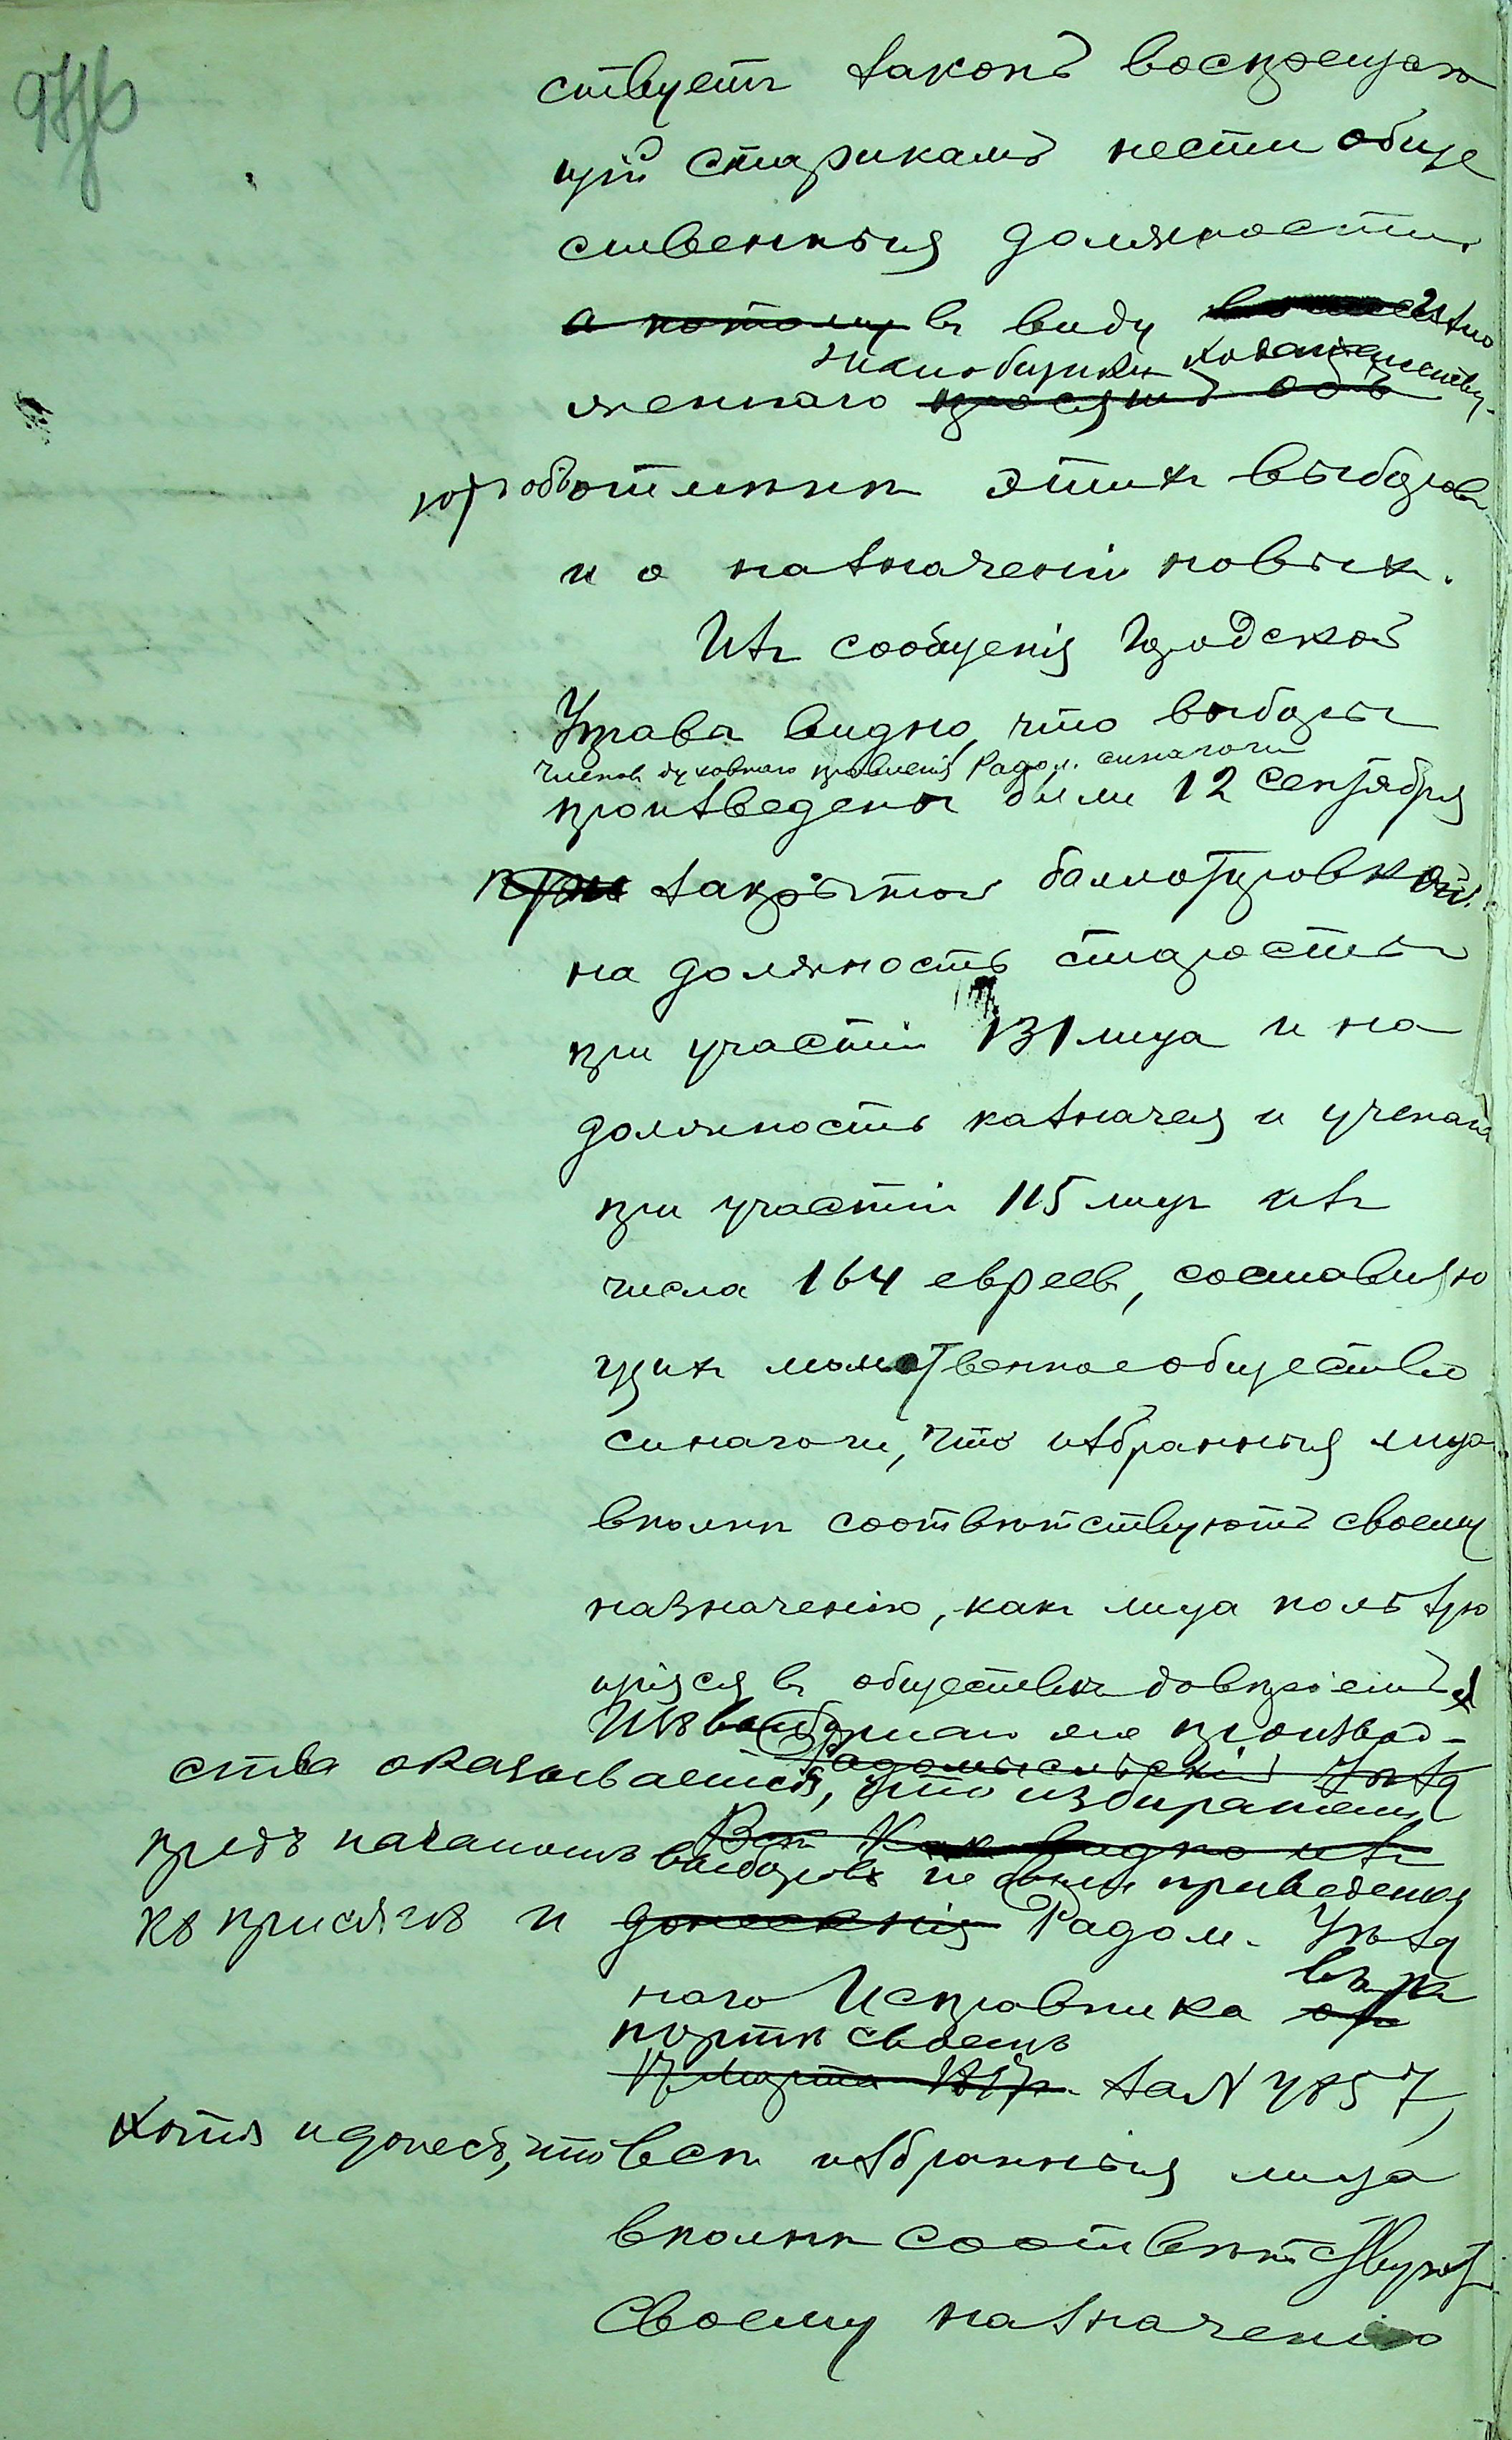 ствуетъ законъ воспрещаю
щій старикамъ нести обще
ственныя должности.
а потому въ виду изло
женнаго просятъ объ
Михлин ходатайству-
ютъ объ отмѣнѣ этихъ выборовъ
и о назначеніи новыхъ.
Изъ сообщенія Городской
Управы видно, что выборы
членовъ духовнаго правленія Радом. синагоги
произведены были 12 сентября
при закрытой баллотировкой
на должность старосты
при участіи 131 лица и на
должность казначея и ученаго
при участіи 115 лицъ изъ
числа 164 евреевъ, составляю
щихъ молитвенное общество
синагоги, что избранныя лица
вполнѣ соотвѣтствуютъ своему
назначенію, какъ лица пользую
щіяся въ обществѣ довѣріемъ
Изъ выборнаго же производ-
Радомысльскій Уѣзд
ства оказывается, что избиратели
Какъ видно изъ
предъ началомъ выборовъ не были приведены
къ присягѣ и донесенія Радом. Уѣзд
наго Исправника въ ра
портѣ своемъ
за N 4857,
хотя и донесъ, что всѣ избранныя лица
вполнѣ соотвѣтствуютъ
своему назначенію